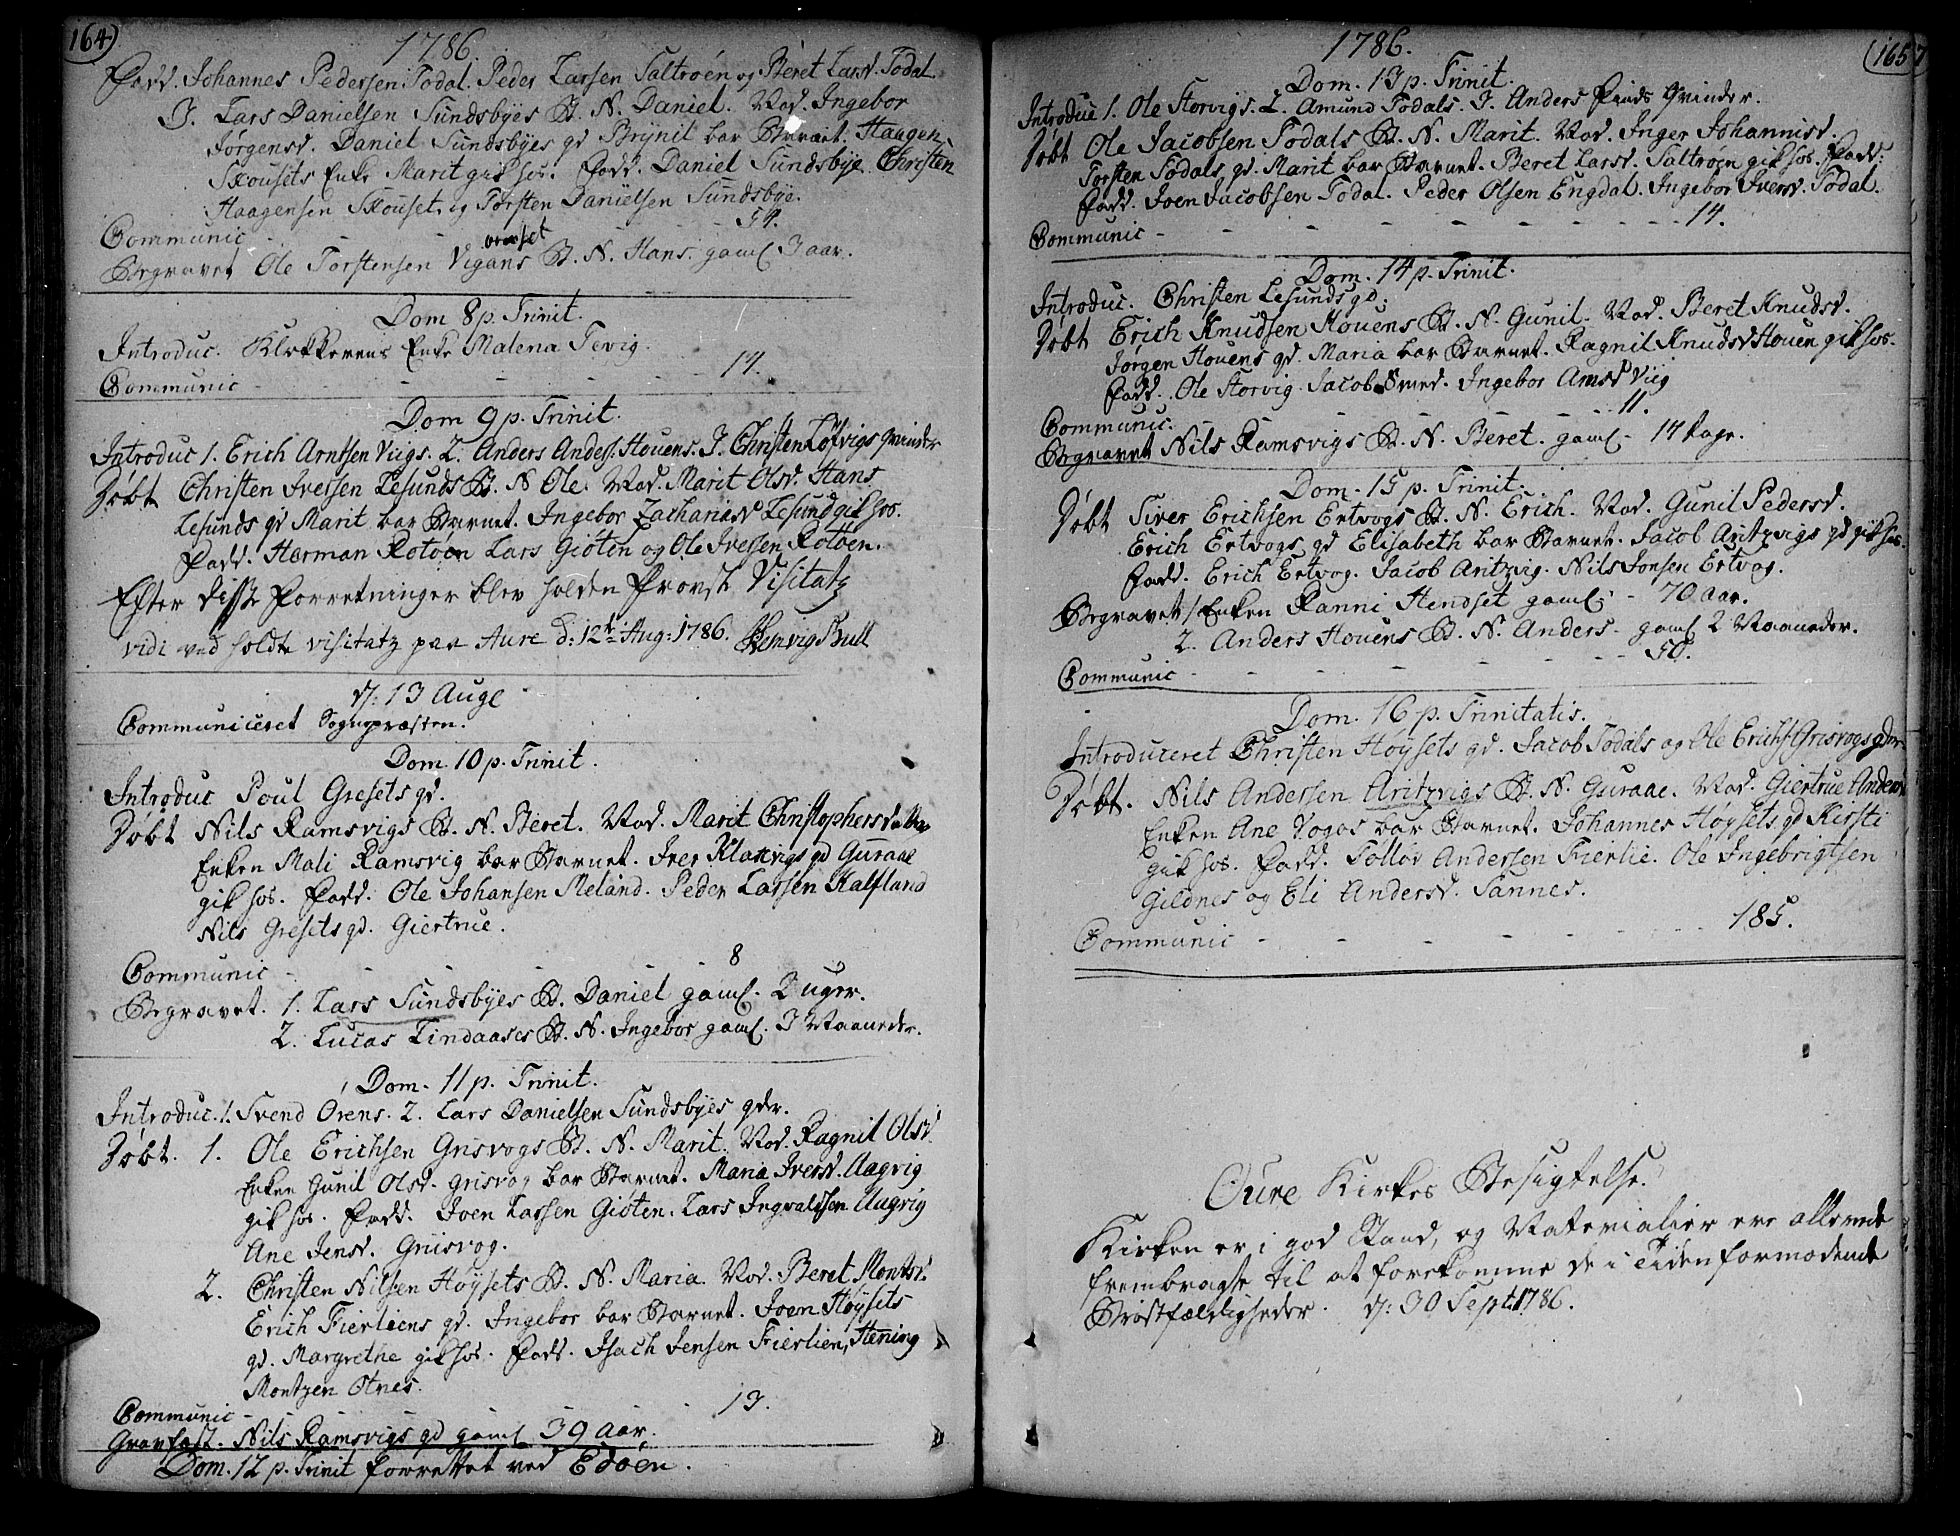 164)
1786
Fadd. Johannes Pedersen Todal. Peder Larsen Saltrøen og Beret Larsd. Todal
3. Lars Danielsen Sundsbyes B. N. Daniel. Mod. Ingebor
Jørgensd. Daniel Sundsbyes qd Brynil bar Barnet. Haagen
Skousets Enke Marit gik hos. Fadd. Daniel Sundsbye. Christen
Haagensen Skouset, og Torsten Danielsen Sundsbye.
Communic - - - - - 54.
Begravet Ole Torstensen Vigans B. N. Hans. gaml 3 aar.
Dom 8 p. Trinit.
Introduc. Klokkerens Enke Malena Tevig.
Communic - - - - - 14.
Dom 9 p. Trinit.
Introduc 1. Erich Arntsen Viigs. 2. Anders Anders. Houens. 3. Christen Løfvigs Qvinder
Døbt Christen Iversen Lesunds B. N Ole. Mod. Marit Olsd. Hans
Lesunds qd Marit bar Barnet. Ingebor Zachariæd Lesund gik hos.
Fadd. Herman Rotøen Lars Giøten og Ole Iversen Rotøen.
Efter disse Forretninger blev holden Provste Visitatz
vidi ved holdte visitatz paa Aure d: 12te Aug: 1786. Henvig Bull
d: 13 Aug
Communiceret Sognepræsten.
Dom. 10 p. Trinit.
Introduc Poul Gresets qd.
Døbt Nils Ramsvigs B. N. Beret. Mod. Marit Christophersd.
Enken Mali Ramsvig bar Barnet. Iver Klakvigs qd Guraae
gik hos. Fadd. Ole Johansen Meland. Peder Larsen Kalfland
Nils Gresets qd. Giertrue.
Communic - - - - - 8
Begravet. 1. Lars Sundsbyes B. Daniel gaml. 3 uger.
2. Lucas Lindaases B. N. Ingebor gaml. 3 Maaneder.
Dom. 11 p. Trinit.
Introduc. 1. Svend Ørens. 2. Lars Danielsen Sundsbyes qdr.
Døbt. 1. Ole Erichsen Grisvogs B. N. Marit. Mod. Ragnil Olsd
Enken Gunil Olsd. Grisvog bar Barnet. Maria Iversd. Aagvig
gik hos. Fadd. Joen Larsen Giøten. Lars Ingvaldsen Aagvig
Ane Jensd. Grisvog.
2. Christen Nilsen Høysets B. N. Maria. Mod. Beret Montzd.
Erich Fierliens qd. Ingebor bar Barnet. Joen Høysets
qd. Margrethe gik hos. Fadd. Isach Jensen Fierlien, Hening
Montzen Otnes.
Communic - - - - 13.
Gravfæst. Nils Ramsvigs qd gaml 39 aar.
Dom. 12 p. Trinit forrettet ved Edøen.
1786.
(165
Dom. 13 p. Trinit.
Introduc 1. Ole Storvigs. 2. Amund Todals. 3. Anders Qvinder.
Døbt Ole Jacobsen Todals B. N. Marit. Mod. Inger Johannisd.
Torsten Todals qd. Marit bar Barnet. Beret Larsd. Saltrøen gik hos. Fadd:
Fadd. Joen Jacobsen Todal. Peder Olsen Engdal. Ingebor Iversd. Todal.
Communic - - - - - 14.
Dom. 14 p. Trinit.
Introduc. Christen Lesunds qd.
Døbt Erich Knudsen Houens B. N. Gunil. Mod. Beret Knudsd.
Jørgen Houens qd. Maria bar Barnet. Ragnil Knudsd Houen gik hos.
Fadd. Ole Storvig Jacob Smed. Ingebor Arnsd Viig
Communic. 11.
Begravet Nils Ramsvigs B. N. Beret. gaml. 14 dage.
Dom. 15 p. Trinit.
Døbt Siver Erichsen Ertvogs B. N. Erich. Mod. Gunil Pedersd.
Erich Ertvogs qd Elisabeth bar Barnet. Jacob Aritzvigs qd gik hos.
Fadd. Erich Ertvog. Jacob Aritzvig. Nils Jonsen Ertvog.
Begravet 1 Enken Ranni Stendset gaml. - 70 aar.
2. Anders Houens B. N. Anders. gaml 2 Maaneder.
Communic - - - - 50.
Dom. 16 p. Trinitatis.
Introduceret Christen Høysets qd. Jacob Todals og Ole Erichs. Grisvogs qdr.
Døbt. Nils Andersen Aritzvigs B. N. Guraae. Mod. Giertrue Andersd
Enken Ane Vogos bar Barnet. Johannes Høysets qd Kirsti
gik hos. Fadd. Tolløv Andersen Fierlie. Ole Ingebrigtsen
Gildnes og Eli Andersd. Sannes.
Communic - - - - - 185.
Oure Kirkes Besigtelse.
Kirken er i god Stand, og Materialier ere allerede
frembragte til at forekomme de i Tiden formodende
Brøstfældigheder. d: 30 Sept. 1786.